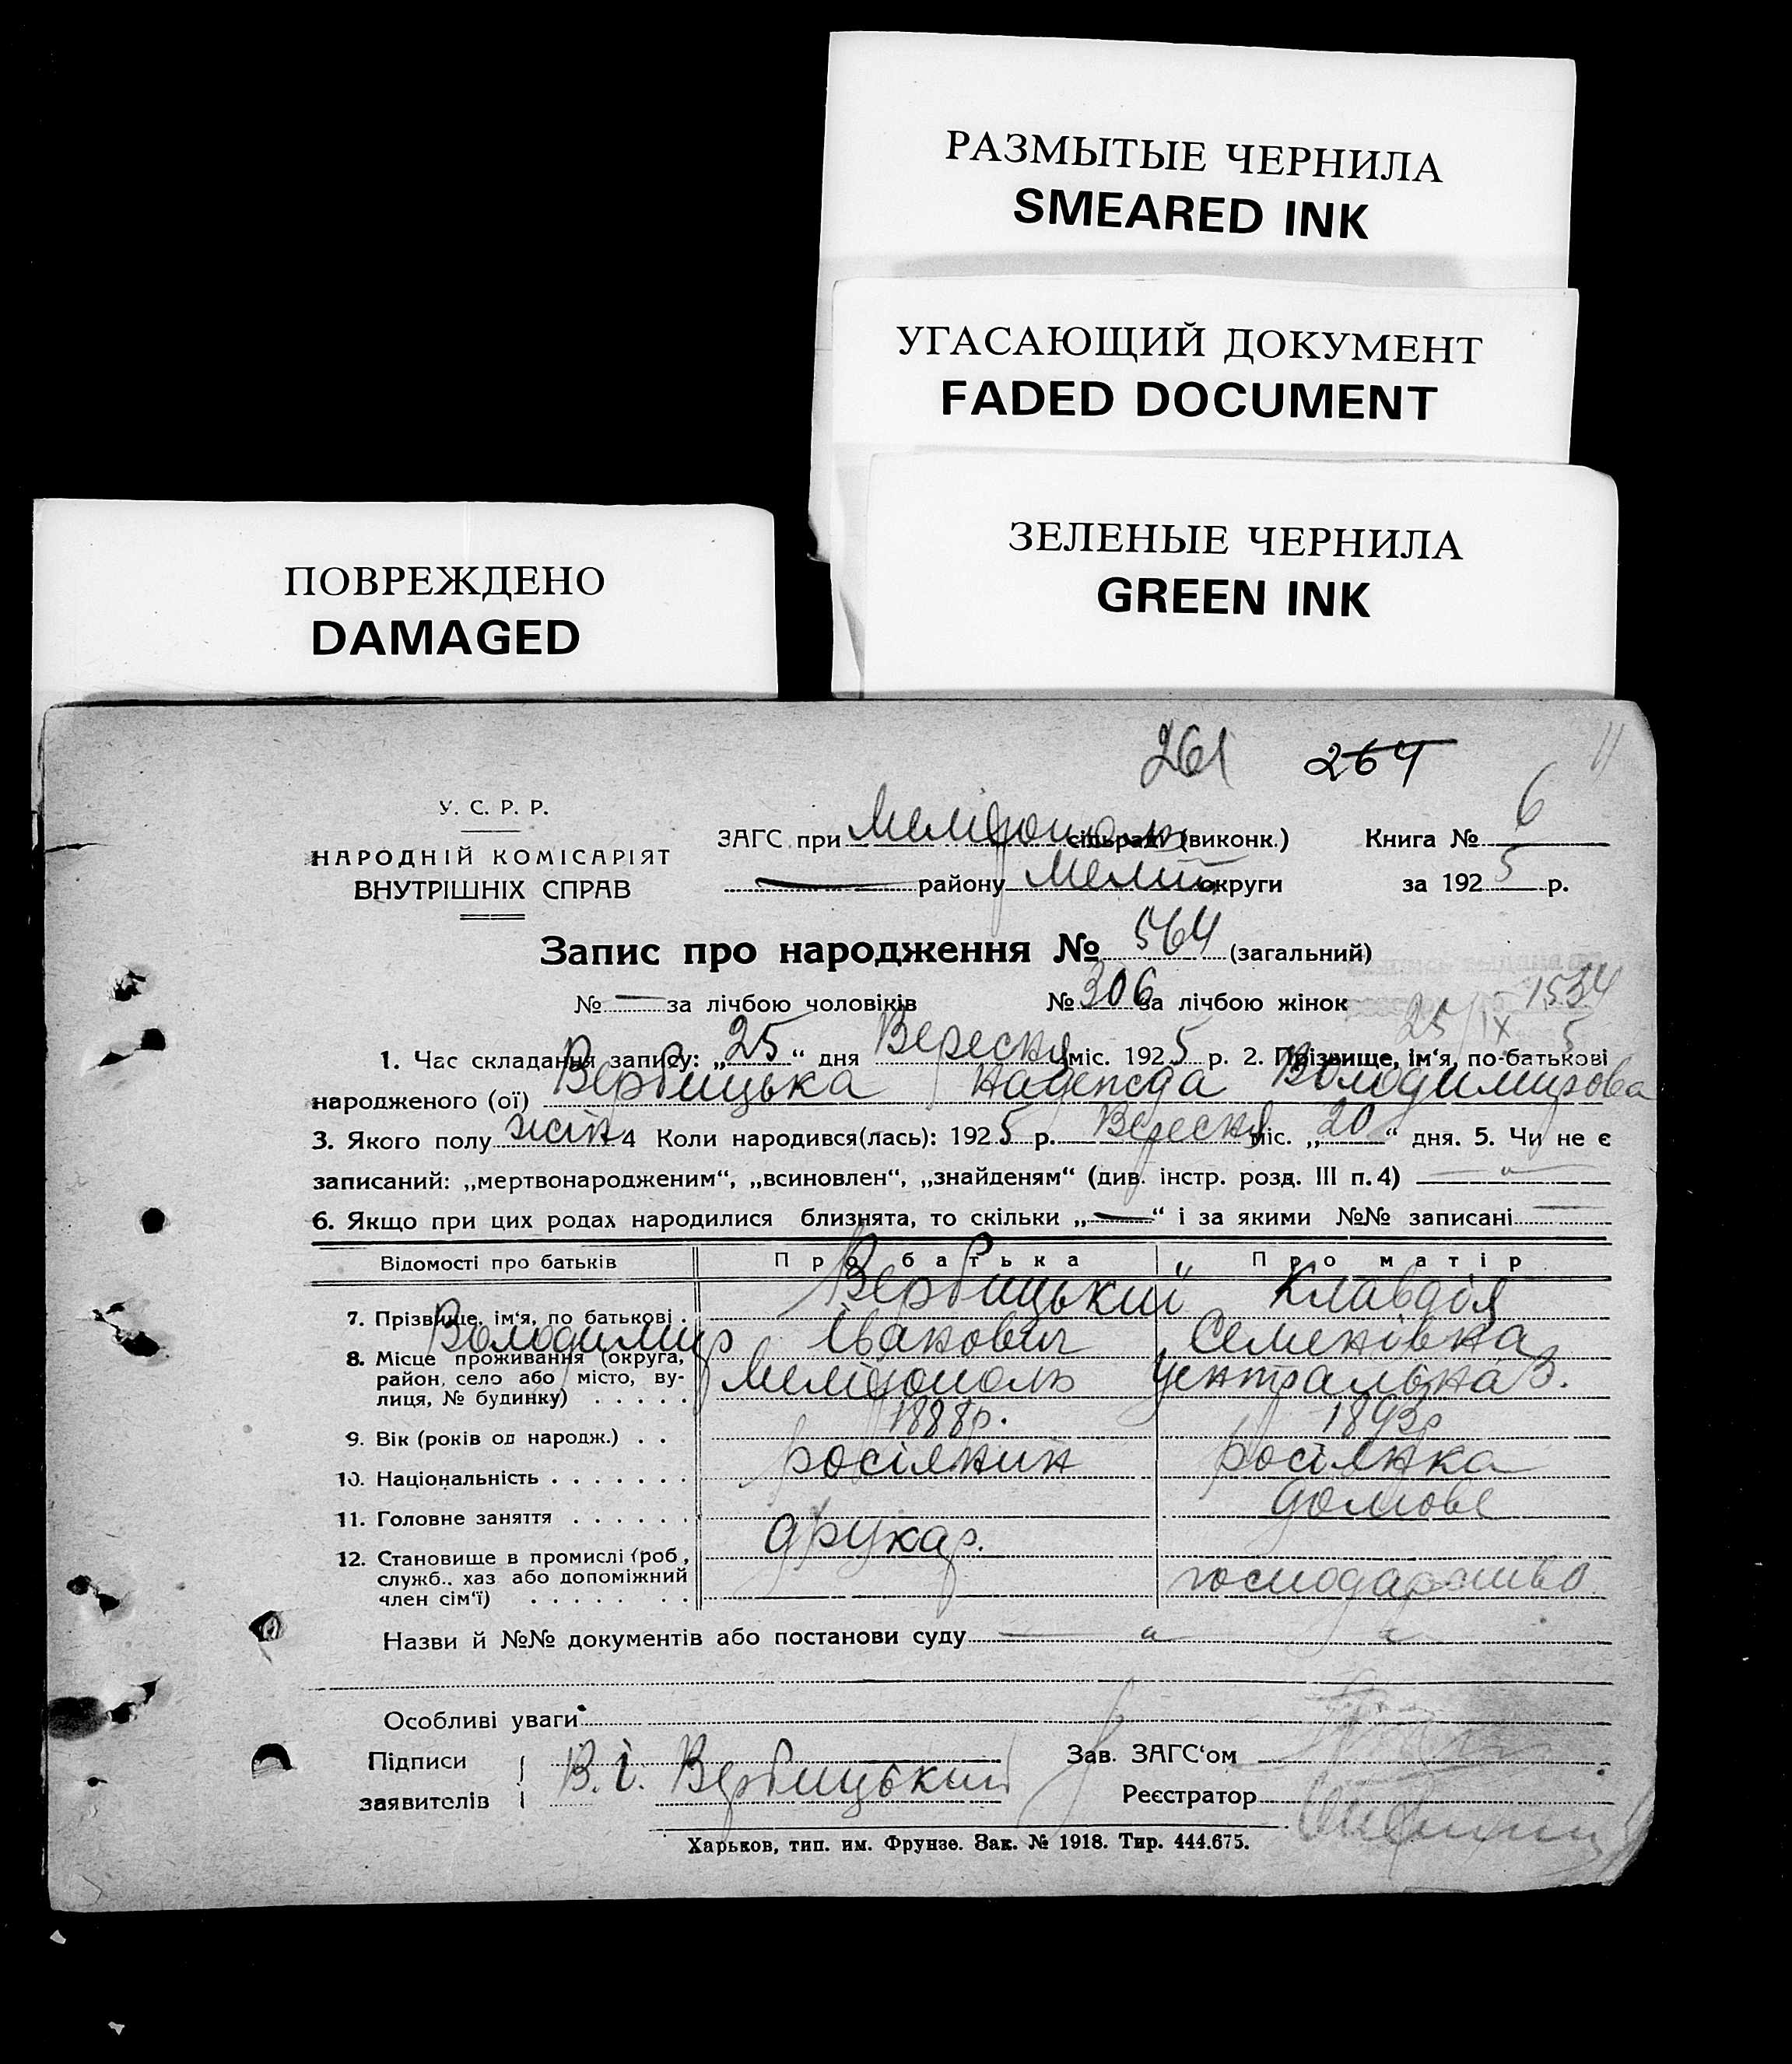 РАЗМЫТЫЕ ЧЕРНИЛА
SMEARED INK
УГАСАЮЩИЙ ДОКУМЕНТ
FADED DOCUMENT
ЗЕЛЕНЫЕ ЧЕРНИЛА
GREEN INK
ПОВРЕЖДЕНО
DAMAGED
261 264
У. С. Р. Р.
НАРОДНІЙ КОМІСАРІЯТ
ВНУТРІШНІХ СПРАВ
ЗАГС при Мелітополь сільраді (виконк.) Книга № 6
— району Меліт округи за 1925 р.
Запис про народження № 564 (загальний)
№ — за лічбою чоловіків № 306 за лічбою жінок 1534
25/IX 5
1. Час складання запису: „25“ дня Вересня міс. 1925 р. 2. Прізвище, ім‘я, по-батькові
народженого (ої) Вербицька Надежда Володимирова
3. Якого полу жін 4 Коли народився(лась): 1925 р. Вересня міс. „20“ дня. 5. Чи не є
записаний: „мертвонародженим“, „всиновлен“, „знайденям“ (див. інстр. розд. III п. 4) — „ —
6. Якщо при цих родах народилися близнята, то скільки „—“ і за якими №№ записані —
Відомості про батьків Про батька Про матір
7. Прізвище, ім‘я, по батькові . Вербицький " Клавдія
Володимир Іванович Семенівна
8. Місце проживання (округа,
район, село або місто, ву-
лиця, № будинку) . . . . . Мелітополь Центральна 3.
9. Вік (років од народж.) . . 1888р. 1893р
10. Національність . . . . . . . росіянин росіянка
11. Головне заняття . . . . . . друкар. домове
12. Становище в промислі (роб.,
служб., хаз або допоміжний
член сім‘ї) . . . . . . . господарство
Назви й №№ документів або постанови суду — „ „
Особливі уваги
Підписи
заявителів В. І. Вербицький
Зав. ЗАГС‘ом
Реєстратор
Харьков, тип. им. Фрунзе. Зак. № 1918. Тир. 444.675.